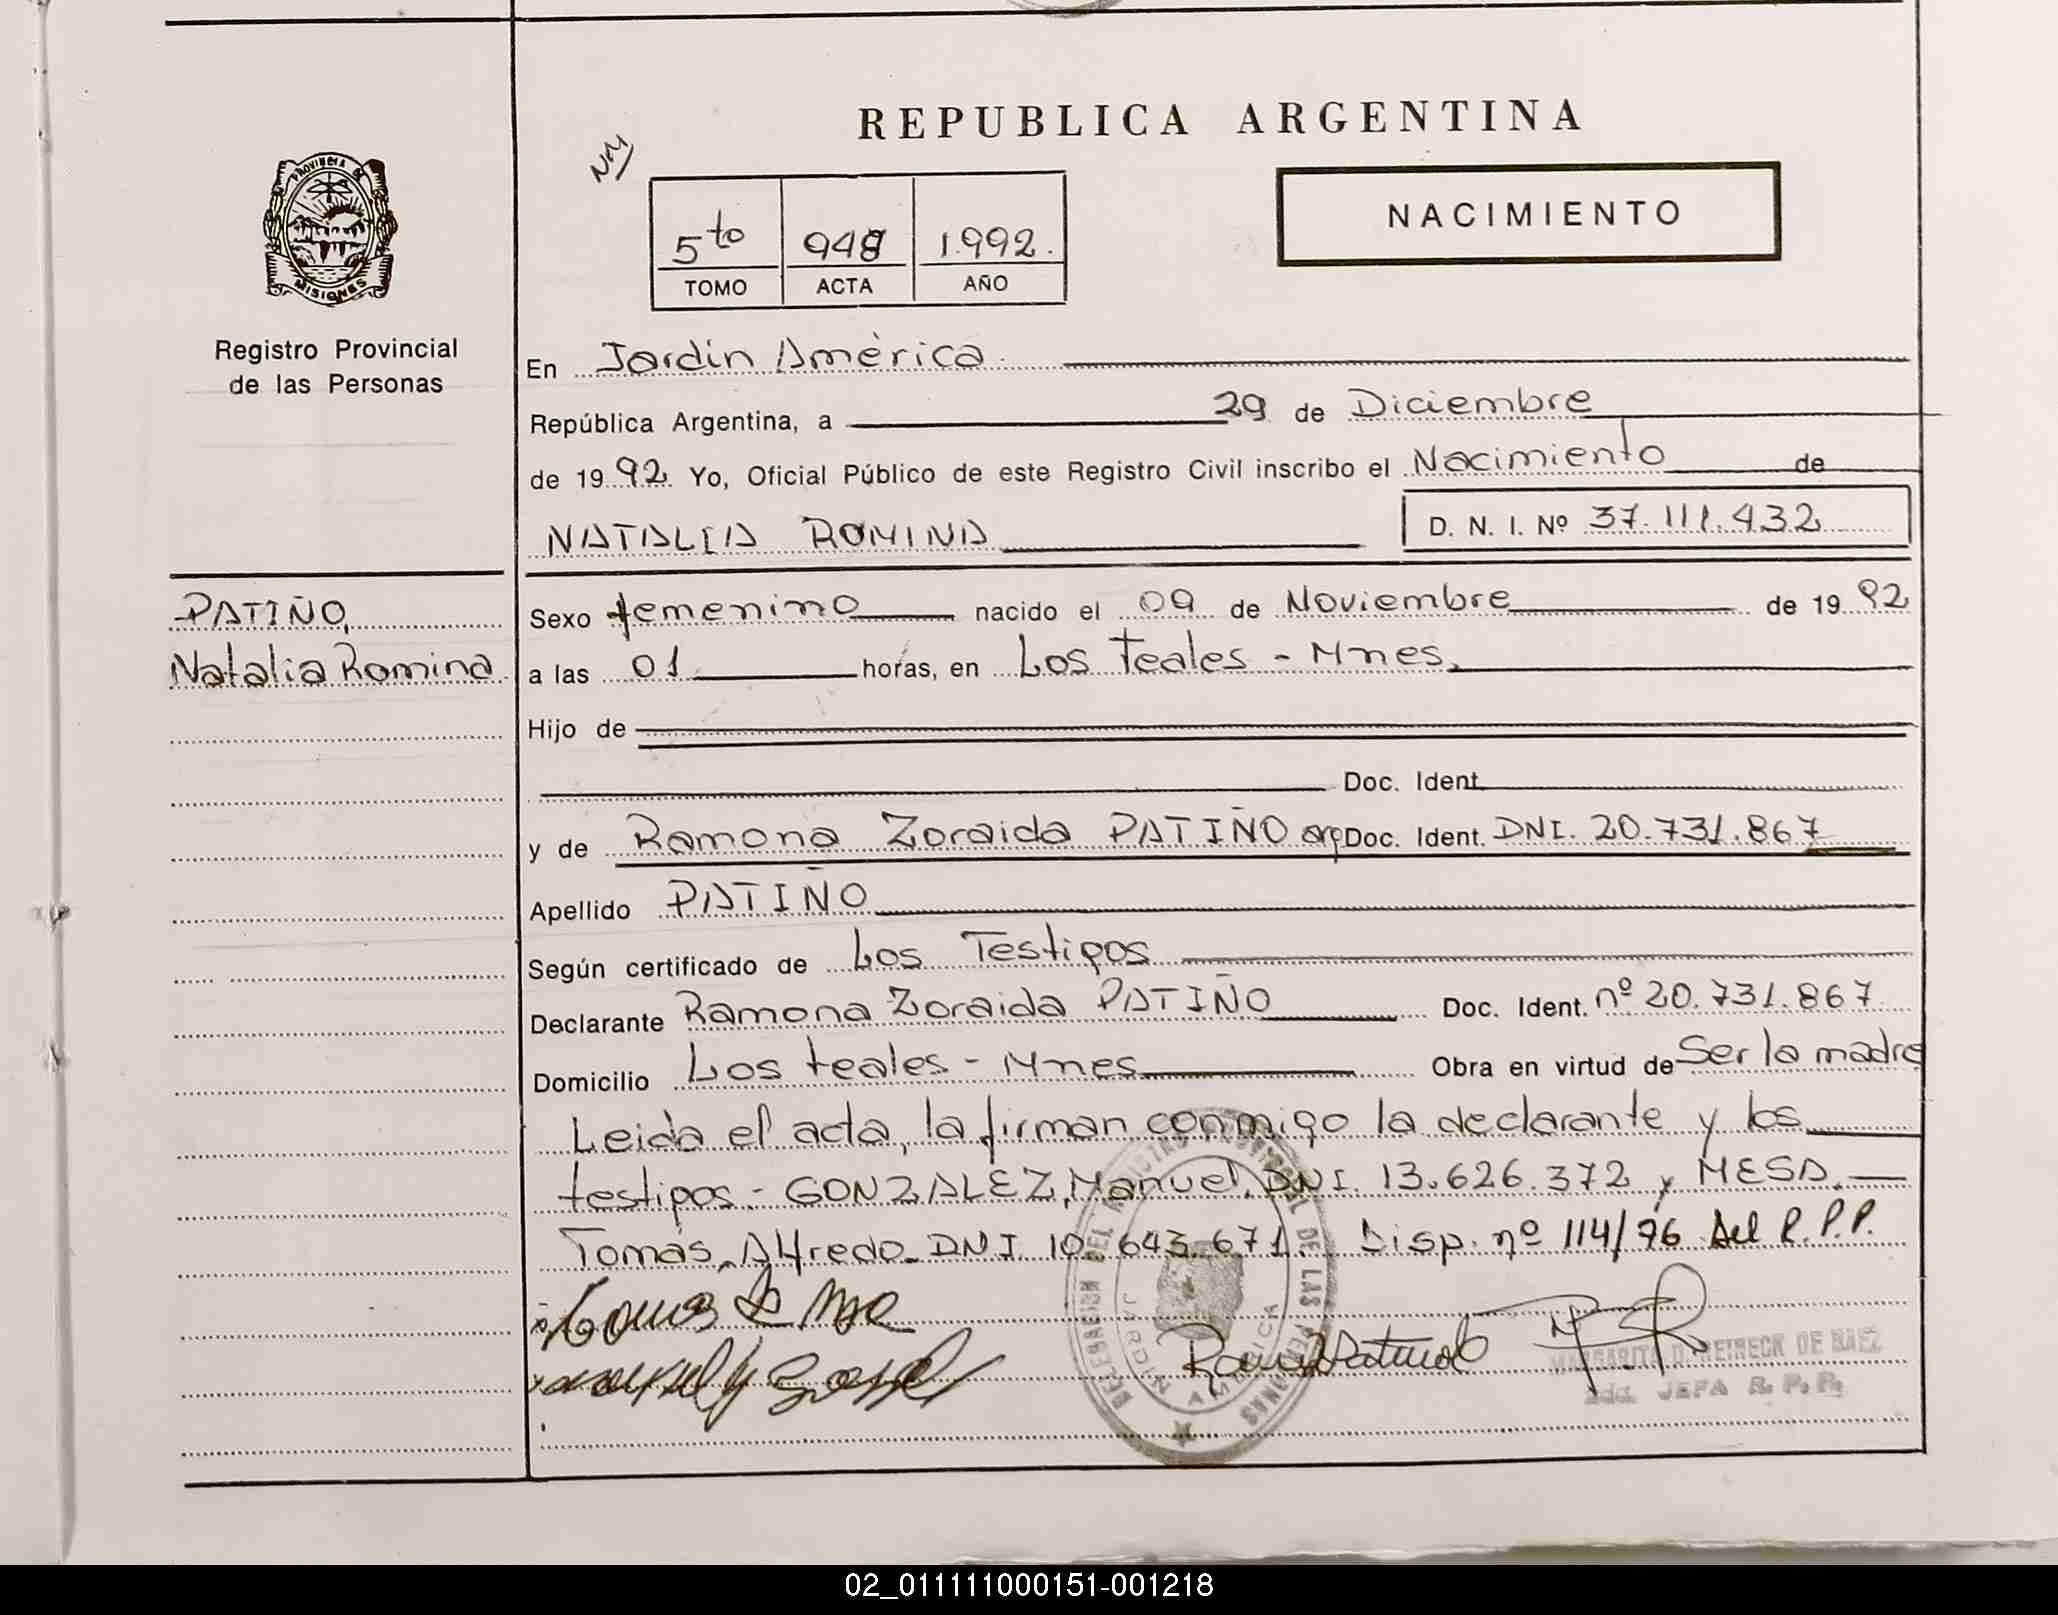 REPUBLICA ARGENTINA
PROVINCIA DE
MISIONES
Registro Provincial
de las Personas
NM
5to 948 1.992.
TOMO ACTA AÑO
NACIMIENTO
En Jardín América
República Argentina, a 29 de Diciembre
de 1992 Yo, Oficial Público de este Registro Civil inscribo el Nacimiento de
NATALIA ROMINA D. N. I. Nº 37.111.432
PATIÑO,
Natalia Romina
Sexo femenino nacido el 09 de Noviembre de 1992
a las 01 horas, en Los Teales - Mnes.
Hijo de
Doc. Ident.
y de Ramona Zoraida PATIÑO arg Doc. Ident. DNI. 20.731.867
Apellido PATIÑO
Según certificado de Los Testigos
Declarante Ramona Zoraida PATIÑO Doc. Ident. nº 20.731.867
Domicilio Los teales - Mnes Obra en virtud de Ser la madre
Leida el acta, la firman conmigo la declarante y los
testigos - GONZALEZ, Manuel, DNI. 13.626.372 y MESA.
Tomás, Alfredo - DNI 10.643.671. Disp. nº 114/76 del R.P.P.
DELEGACION DEL REGISTRO PROVINCIAL DE LAS PERSONAS
JARDIN AMERICA
MARGARITA D. REIRECK DE BAEZ
2da. JEFA R. P. P.
02_011111000151-001218